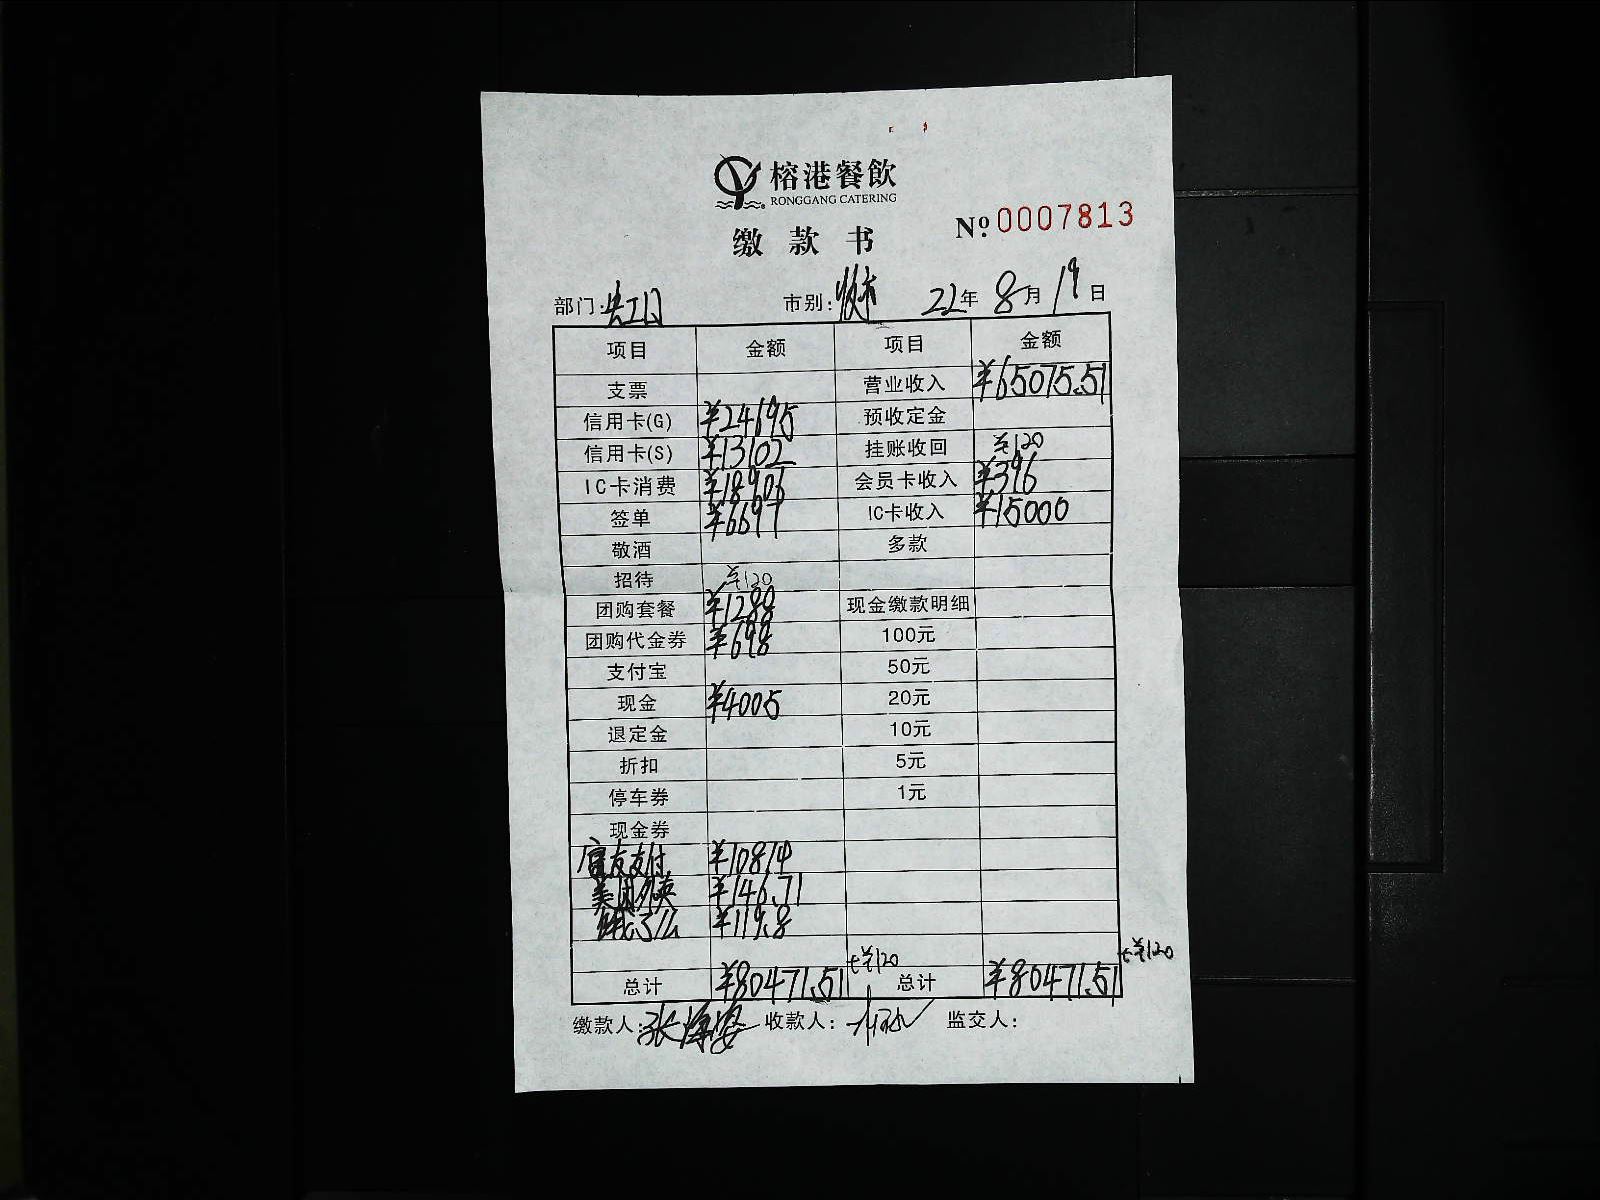 榕港餐飲
RONGGANG CATERING
缴款书
№ 0007813
部门: 市别: 晚市 22年 8月 19日
项目 金额 项目 金额
支票 营业收入 ¥65075.51
信用卡(G) ¥24695 预收定金
信用卡(S) ¥13102 挂账收回 ¥120
IC卡消费 ¥18906 会员卡收入 ¥396
签单 ¥6697 IC卡收入 ¥15000
敬酒 多款
招待 ¥120
团购套餐 ¥1288 现金缴款明细
团购代金券 ¥698 100元
支付宝 50元
现金 ¥4005 20元
退定金 10元
折扣 5元
停车券 1元
现金券
支付 ¥10814
美团外卖 ¥146.71
饿了么 ¥119.8
总计 ¥80471.51 +¥120 总计 ¥80471.51 +¥120
缴款人: 张海 收款人: 监交人: